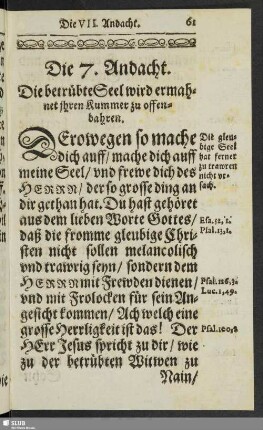 Die VII. Andacht. 61
Die 7. Andacht.
Die betrübte Seel wird ermah-
net jhren Kummer zu offen-
bahren.
DErowegen so mache
dich auff / mache dich auff
meine Seel / vnd frewe dich des
HERRN / der so grosse ding an
dir gethan hat. Du hast gehöret
aus dem lieben Worte Gottes /
daß die fromme gleubige Chri-
sten nicht sollen melancolisch
vnd trawrig seyn / sondern dem
HERRN mit Frewden dienen /
vnd mit Frolocken für sein An-
gesicht kommen / Ach welch eine
grosse Herrligkeit ist das! Der
HErr Jesus spricht zu dir / wie
zu der betrübten Witwen zu
Nain /
Die gleu-
bige Seel
hat ferner
zu trawren
nicht vr-
sach.
Psal. 126,3.
Luc. 1,49.
Psal. 100,2
SLUB